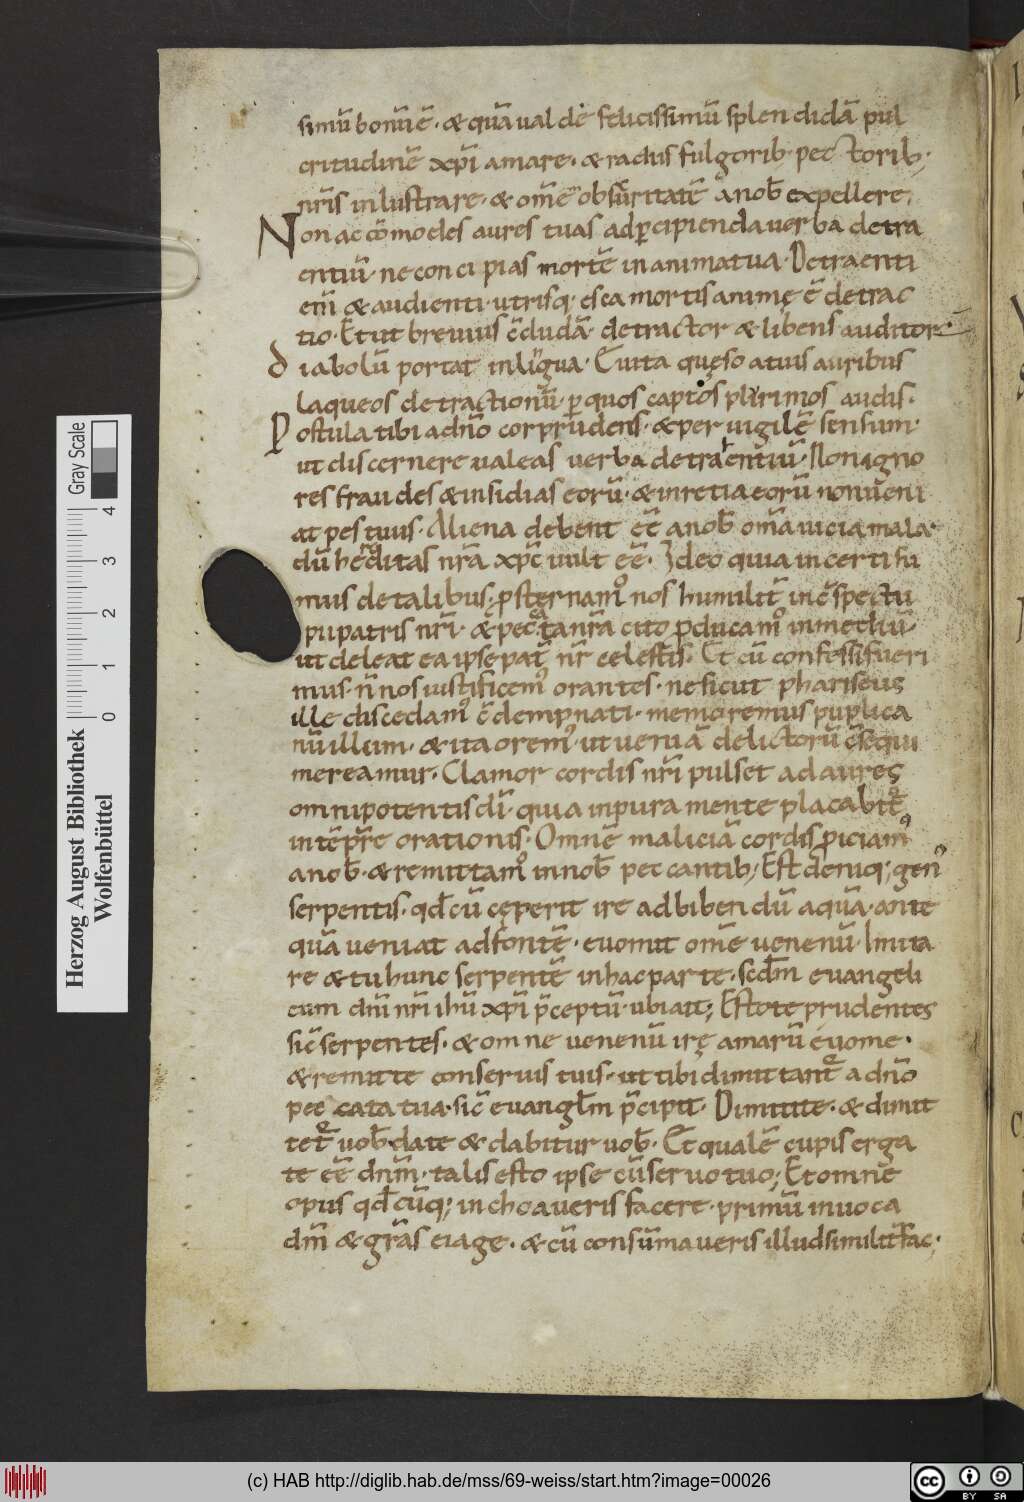 simū bonū ē · & quā ualde felicissimū splendidā pul
critudinē xp̄i amare · & radiis fulgorib· pectorib;
nr̄is inlustrare · & om̄ē obscuritatē a nob̄ expellere,
Non accōmodes aures tuas ad p̱cipienda uerba detra
entiū · ne concipias mortē in anima tua · Detraenti
eni̅ & audienti · utrisq; esca mortis animę ē detrac
tio · Et ut breuius c̄cludā · detractor & libens auditor ·
diabolū portat in līgua · Euita quęso a tuis auribus
laqueos detractionū · p̱ quos captos plurimos audis ·
Postula tibi a dn̄o cor prudens · & peruigilē sensum ·
ut discernere ualeas uerba detraentiū · Non igno
res fraudes & insidias eorū · & in retia eorū non ueni
at pes tuus · Aliena debent eē a nob̄ om̄a uicia mala ·
dū hereditas nr̄a xp̄c uult eē · Ideo quia incerti su
mus de talibus; p̱sternam᷒ nos humilit̄ in c̄spectu
pii patris nr̄i · & peccata nr̄a cito p̱ducam᷒ in mediū ·
ut deleat ea ipse pat̄ nr̄ celestis · Et cū confessi fueri
mus · n̄ nos iustificem᷒ orantes · ne sicut phariseus
ille discedam᷒ c̄dempnati · memoremus puplica
nū illum · & ita orem᷒ · ut ueniā delictorū c̄sequi
mereamur · Clamor cordis nr̄i pulset ad aures
omnipotentis dī · quia in pura mente placabit᷑
in tēpr̄e orationis · Omnē maliciā cordis p̱iciam᷒
a nob̄ · & remittam᷒ in nob̄ peccantib; Est deniq; gen᷒
serpentis · qđ cū cęperit ire ad bibendū aquā · ante
quā ueniat ad fontē · euomit om̄e uenenū · Imita
re & tu hunc serpentē in hac parte · scd̄m euangeli
cum dn̄i nr̄i ihū xp̄i p̄ceptū · ubi ait; Estote prudentes
sic̄ serpentes · & omne uenenū irę amarū euome ·
& remitte conseruis tuis · ut tibi dimittant᷑ a dn̄o
peccata tua · sic̄ euangl̄m p̄cipit · Dimitite · & dimit
tet᷑ uob̄ · date & dabitur uob̄ · Et qualē cupis erga
te eē dn̄m · talis esto ipse cū seruo tuo; Et omne
opus qđcūq; inchoaueris facere · primū inuoca
dm̄ & grās ei age · & cū consūmaueris illud similit̄ fac ·
Herzog August Bibliothek
Wolfenbüttel
0 1 2 3 4
Gray Scale
(c) HAB http://diglib.hab.de/mss/69-weiss/start.htm?image=00026
cc BY SA